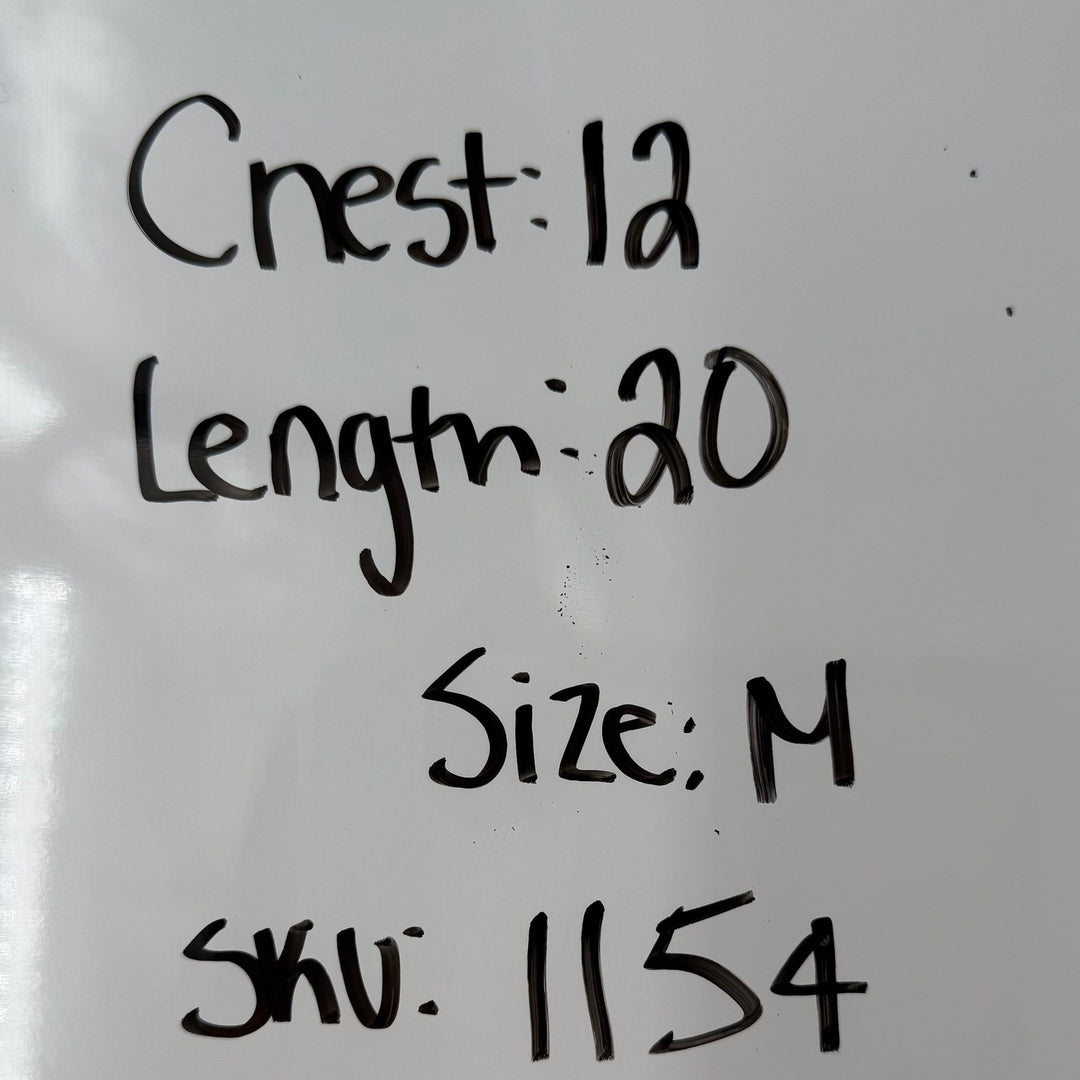 Chest: 12
Length: 20
Size: M
SKU: 1154